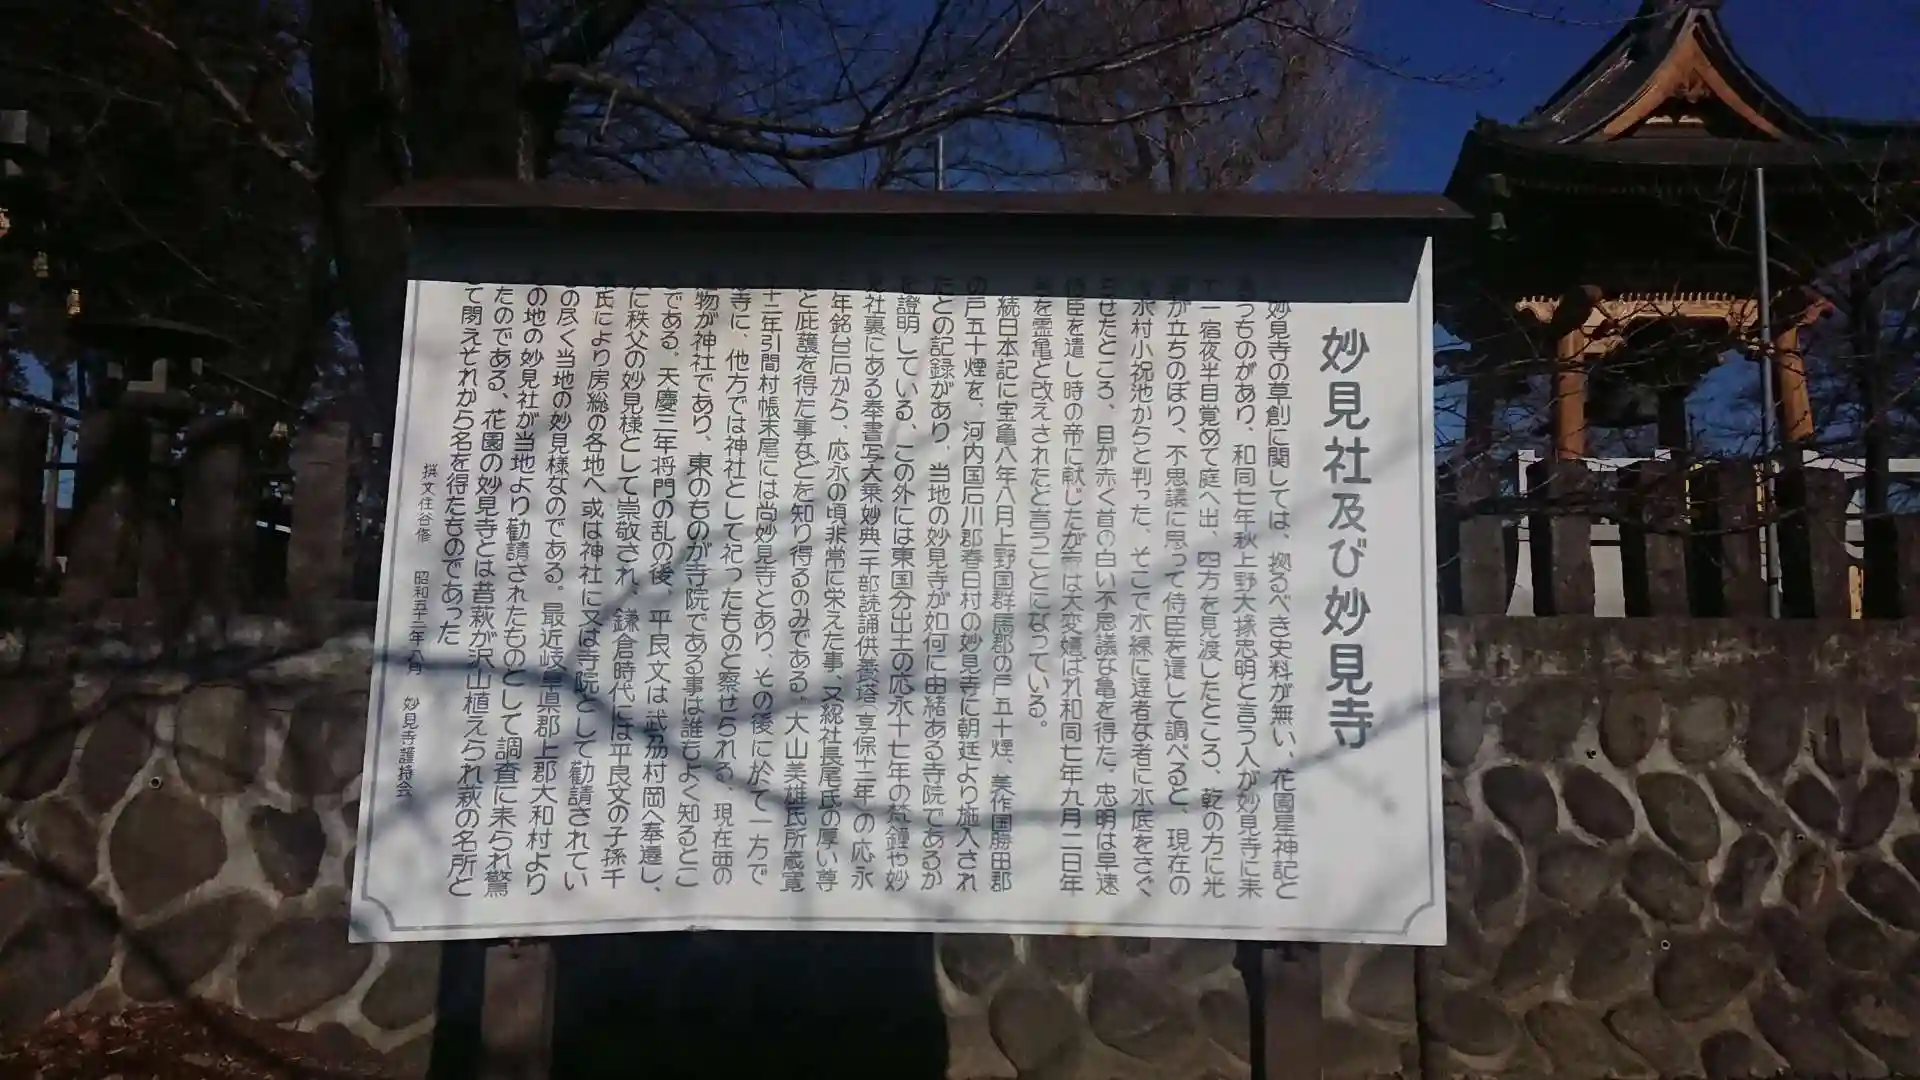 妙見社及び妙見寺
妙見寺の草創に関しては、拠るべき史料が無い、花園星神記と
うつものがあり、和同七年秋上野大掾忠明と言う人が妙見寺に来
て一宿夜半目覚めて庭へ出、四方を見渡したところ、乾の方に光
が立ちのぼり、不思議に思って侍臣を遣して調べると、現在の
水村小祝池からと判った、そこで水練に達者な者に水底をさぐ
らせたところ、目が赤く首の白い不思議な亀を得た。忠明は早速
臣を遣し時の帝に献じたが帝は大変嬉ばれ和同七年九月二日年
を霊亀と改えされたと言うことになっている。
続日本記に宝亀八年八月上野国群馬郡の戸五十煙、美作国勝田郡
の戸五十煙を、河内国石川郡春日村の妙見寺に朝廷より施入され
たとの記録があり、当地の妙見寺が如何に由緒ある寺院であるか
証明している、この外には東国分出土の応永十七年の梵鐘や妙
社裏にある奉書写大乗妙典一千部読誦供養塔、享保十二年の応永
年銘台石から、応永の頃非常に栄えた事、又総社長尾氏の厚い尊
と庇護を得た事などを知り得るのみである。大山美雄氏所蔵寛
十二年引間村帳末尾には尚妙見寺とあり、その後に於て一方で
寺に、他方では神社として祀ったものと察せられる、現在西の
物が神社であり、東のものが寺院である事は誰もよく知るとこ
である。天慶三年将門の乱の後、平良文は武蔵村岡へ奉遷し、
に秩父の妙見様として崇敬され、鎌倉時代には平良文の子孫千
氏により房総の各地へ或は神社に又は寺院として勧請されてい
の尽く当地の妙見様なのである。最近岐阜県郡上郡大和村より
の地の妙見社が当地より勧請されたものとして調査に来られ驚
たのである、花園の妙見寺とは昔萩が沢山植えられ萩の名所と
て聞えそれから名を得たものであった
撰文住谷修 昭和五十二年八月 妙見寺護持会